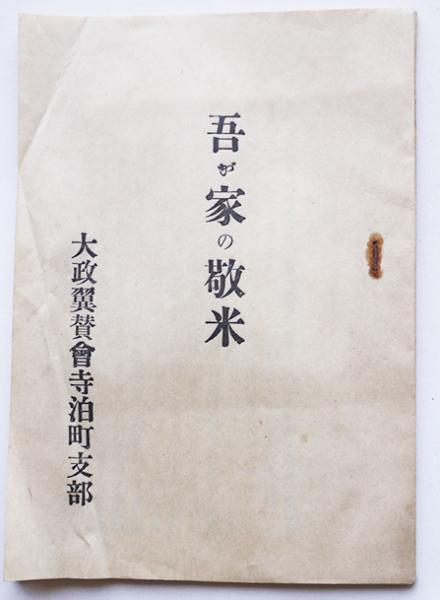 吾が家の敬米
大政翼賛會寺泊町支部